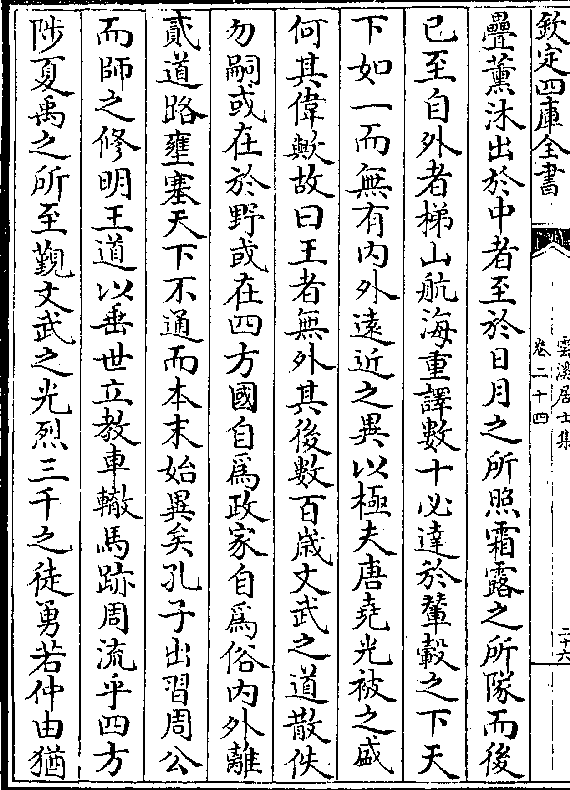 欽定四庫全書
雲溪居士集
卷二十四
二十六
疊薫沐出於中者至於日月之所照霜露之所隊而後
已至自外者梯山航海重譯數十必達於輦轂之下天
下如一而無有内外遠近之異以極夫唐堯光被之盛
何其偉歟故曰王者無外其後數百歳文武之道散佚
勿嗣或在於野或在四方國自為政家自為俗内外離
貳道路壅塞天下不通而本末始異矣孔子出習周公
而師之修明王道以垂世立教車轍馬跡周流乎四方
陟夏禹之所至觀文武之光烈三千之徒勇若仲由猶